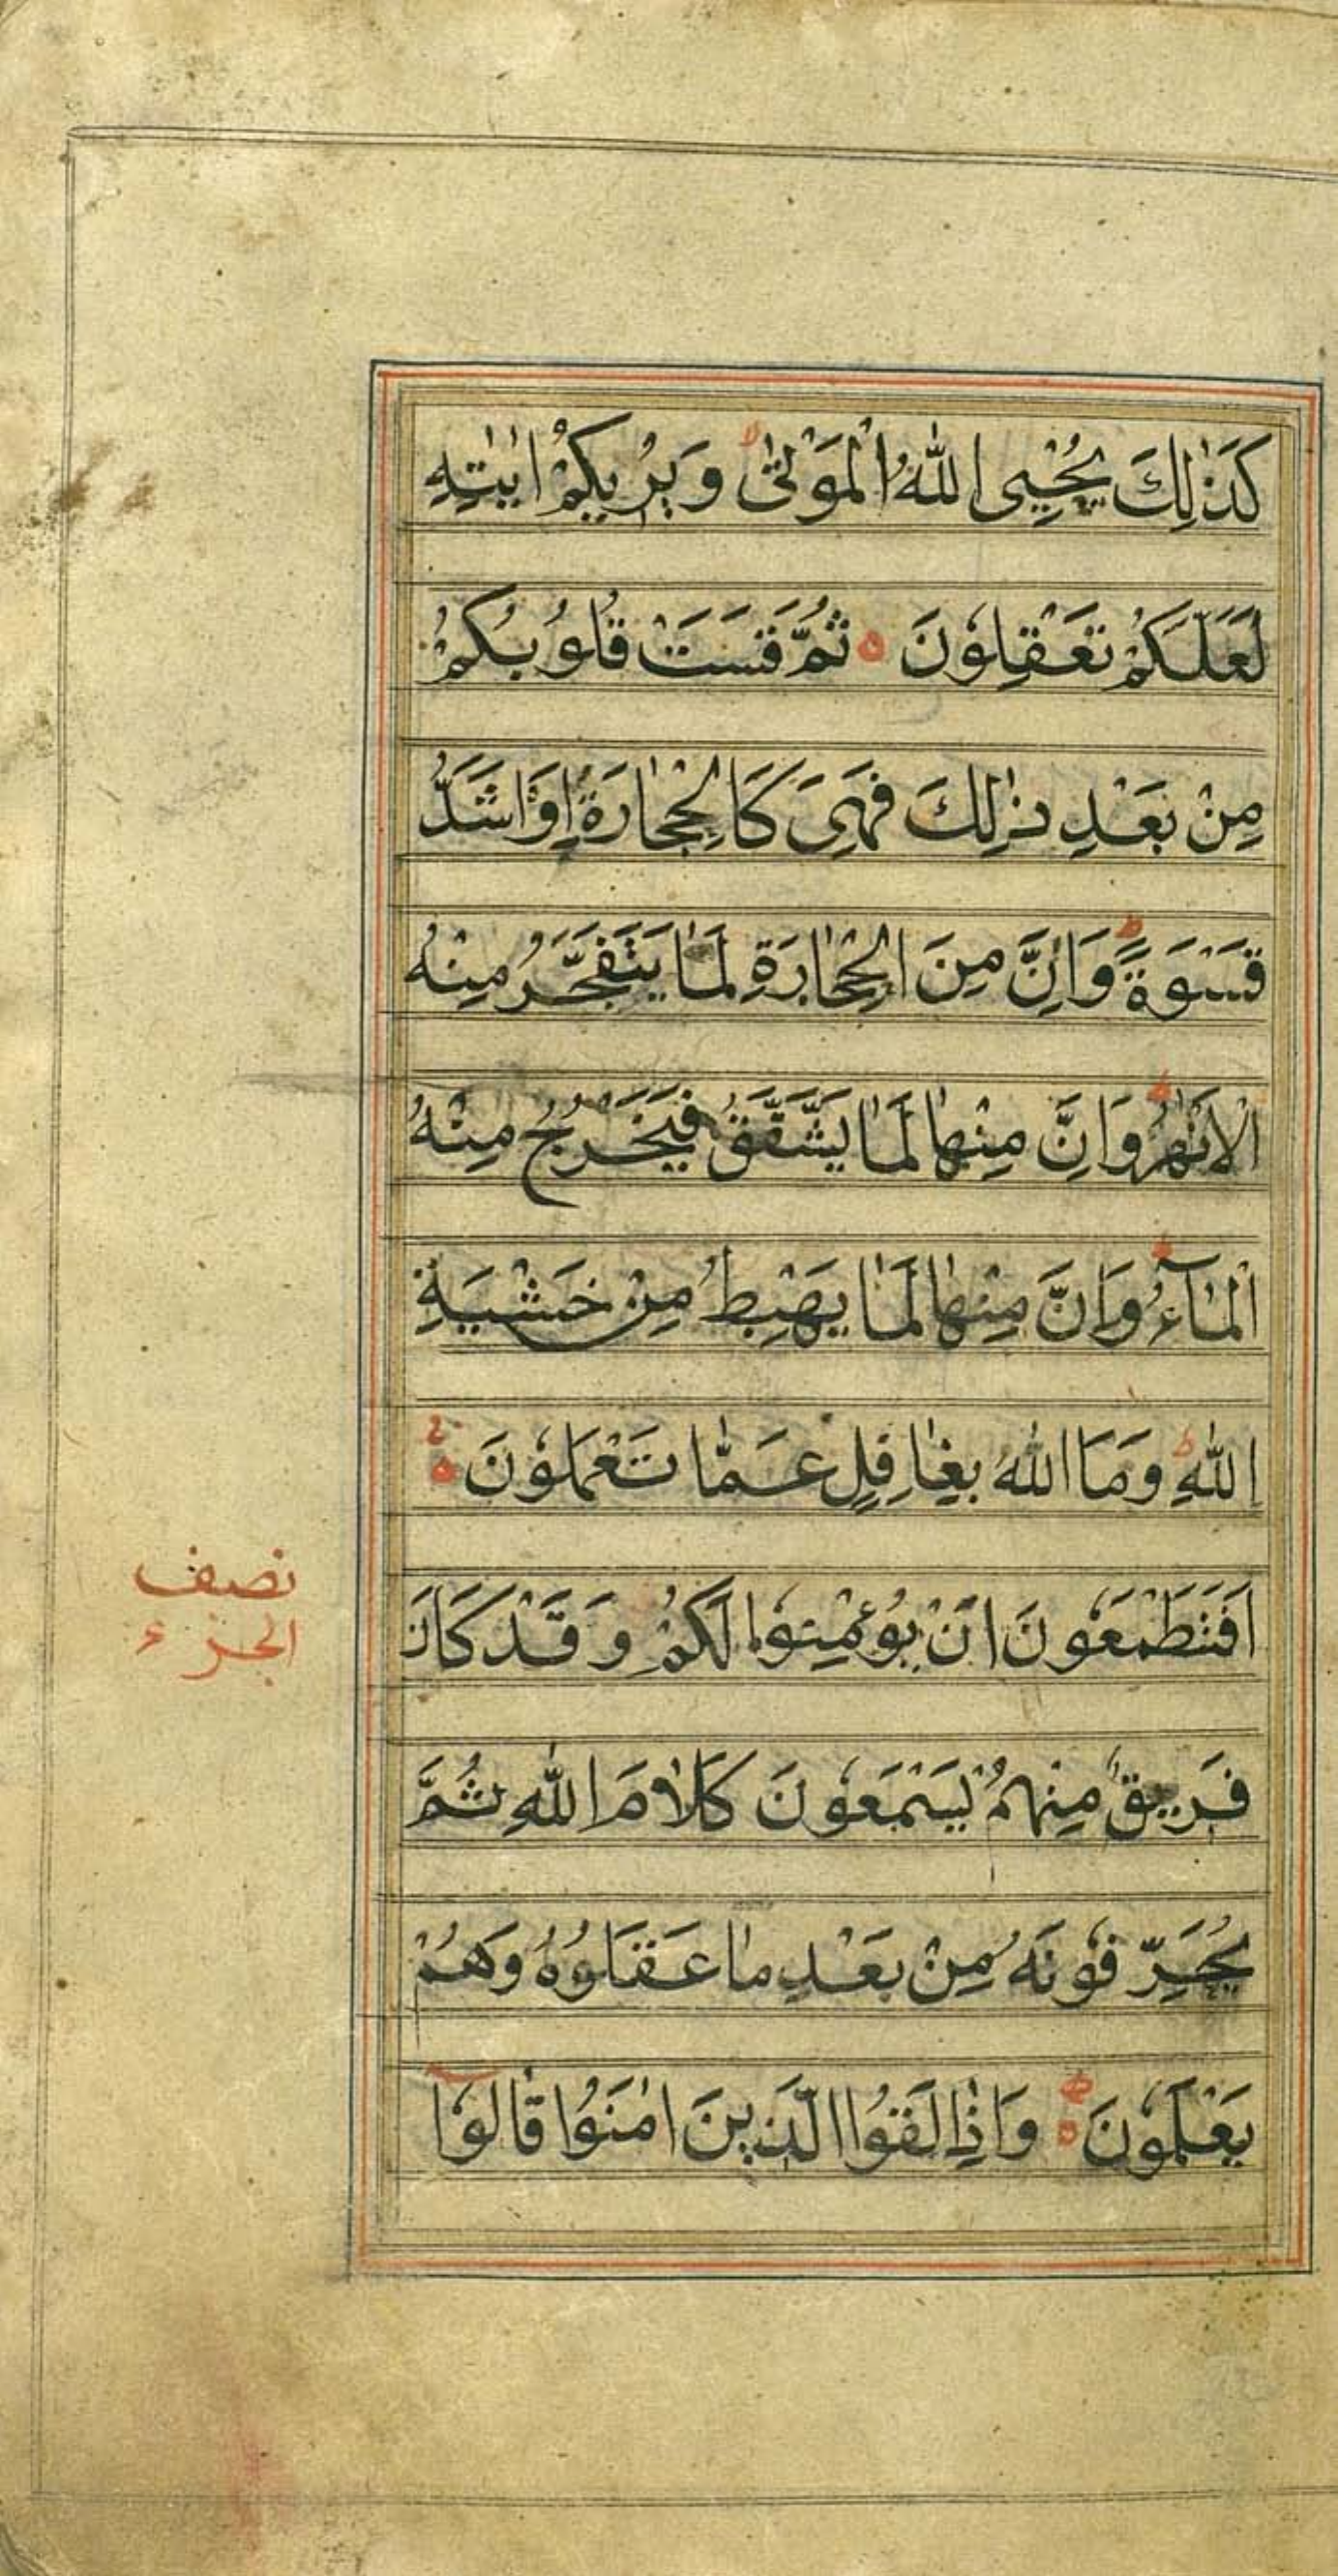 كَذٰلِكَ يُحْيِي اللّٰهُ الْمَوْتٰىۙ وَيُرِيكُمْ اٰيٰتِهِ
لَعَلَّكُمْ تَعْقِلُوْنَ ه ثُمَّ قَسَتْ قُلُوبُكُمْ
مِنْ بَعْدِ ذٰلِكَ فَهِىَ كَالْحِجٰارَةِ اَوْ اَشَدُّ
قَسْوَةًؕ وَاِنَّ مِنَ الْحِجٰارَةِ لَمٰا يَتَفَجَّرُ مِنْهُ
الْاَنْهٰرُؕ وَاِنَّ مِنْهٰا لَمٰا يَشَّقَّقُ فَيَخْرُجُ مِنْهُ
الْمٰآءُؕ وَاِنَّ مِنْهٰا لَمٰا يَهْبِطُ مِنْ خَشْيَةِ
اللّٰهِؕ وَمَا اللّٰهُ بِغٰافِلٍ عَمّٰا تَعْمَلُوْنَ ه
اَفَتَطْمَعُوْنَ اَنْ يُؤْمِنُوْا لَكُمْ وَقَدْ كَانَ
نصف
الجزء
فَرِيقٌ مِنْهُمْ يَسْمَعُوْنَ كَلَامَ اللّٰهِ ثُمَّ
يُحَرِّفُوْنَهُ مِنْ بَعْدِ مٰا عَقَلُوْهُ وَهُمْ
يَعْلَمُوْنَ ه وَاِذٰا لَقُوا الَّذِينَ اٰمَنُوْا قٰالُوْا